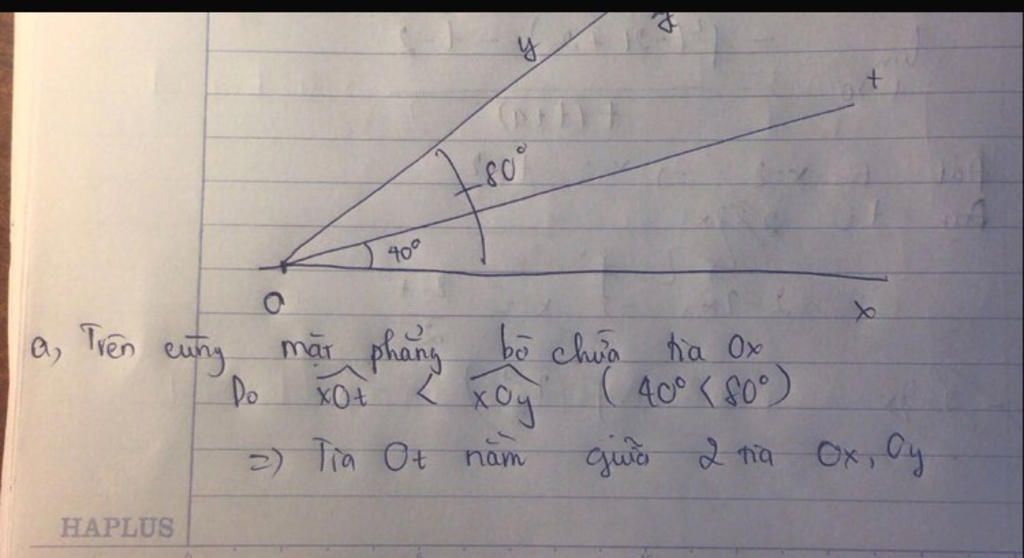 y
t
80°
40°
O
x
a, Trên cùng mặt phẳng bờ chứa tia Ox
Do xOt < xOy (40° < 80°)
=) Tia Ot nằm giữa 2 tia Ox, Oy
HAPLUS